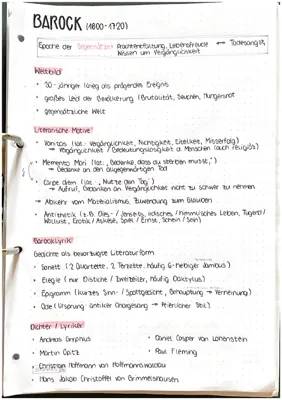 BAROCK (1600-1720)
Epoche der Gegensätze: Prachtentfaltung, Lebensfreude ↔ Todesangst,
Wissen um Vergänglichkeit
Weltbild
• 30-jähriger Krieg als prägendes Ereignis
• großes Leid der Bevölkerung (Brutalität, Seuchen, Hungersnot
• gegensätzliche Welt
Literarische Motive
• Vanitas (lat. Vergänglichkeit, Nichtigkeit, Eitelkeit, Misserfolg)
→ Vergänglichkeit / Bedeutungslosigkeit d. Menschen (auch religiös)
• Memento Mori (lat. „Gedenke, dass du sterben musst,")
→ Gedanke an den allgegenwärtigen Tod
• Carpe diem (lat. „Nutze den Tag")
→ Aufruf, Gedanken an Vergänglichkeit nicht zu schwer zu nehmen
→ Abkehr vom Materialismus, Zuwendung zum Glauben
• Antithetik (z.B. Dies- / Jenseits, irdisches / himmlisches Leben, Tugend /
Wollust, Erotik / Askese, Spiel / Ernst, Schein / Sein)
Barocklyrik
Gedichte als bevorzugte Literaturform
• Sonett (2 Quartette, 2 Terzette, häufig 6-hebiger Jambus)
• Elegie (nur Distiche / Zweizeiler, häufig Daktylus)
• Epigramm (kurzes Sinn- / Spottgedicht, Behauptung → Verneinung)
• Ode (Ursprung antiker Chorgesang → feierlicher Stil)
Dichter / Lyriker
• Andreas Gryphius
• Daniel Casper von Lohenstein
• Martin Opitz
• Paul Fleming
• Christian Hoffmann von Hoffmannswaldau
• Hans Jakob Christoffel von Grimmelshausen